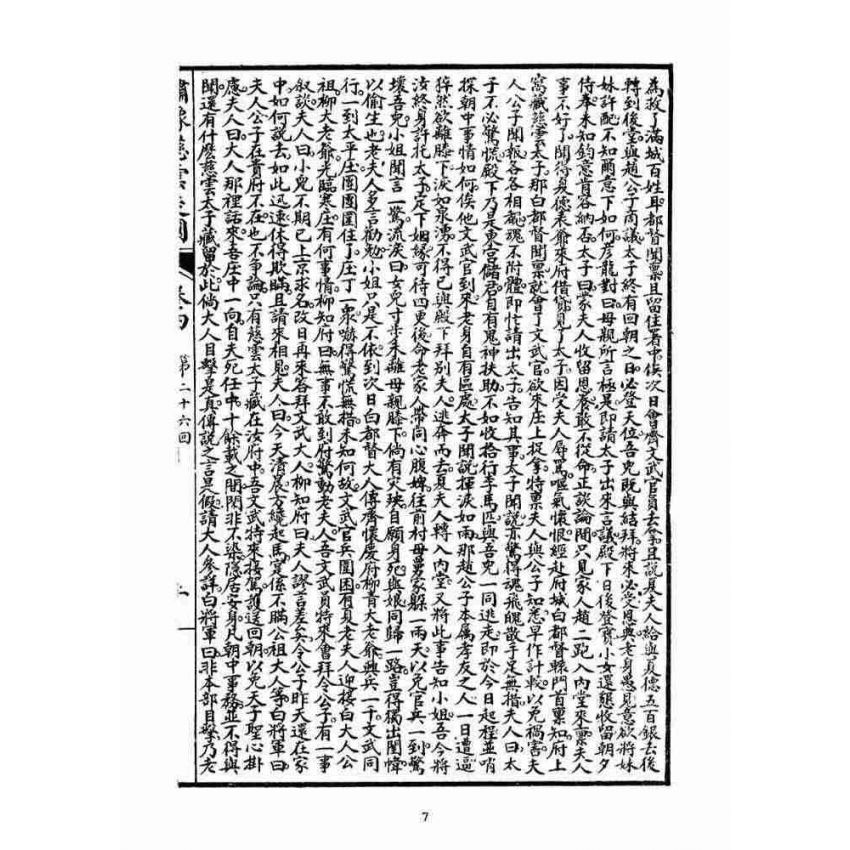 為救了滿城百姓耳都督聞禀且留住署中俟次日會齊文武官員去拿且說夏夫人給與夏德五百銀去後
轉到後堂與趙公子商議太子終有回朝之日必登天位吾兒既與結拜將來必受恩典老身愚見意欲將妹
妹許配不知爾意下如何彦龍對曰母親所言極是即請太子出來言議殿下日後登寶小女還懇收留朝夕
侍奉未知鈞意肯容納否太子曰蒙夫人收留恩養敢不從命正談論間只見家人趙二跑入內堂來禀夫人
事不好了聞得夏德表爺來府借貸見了太子因受夫人辱罵嘔氣懷恨經赴府城白都督轅門首禀知府上
窩藏慈雲太子那白都督聞禀就會了文武官欲來庄上捉拿特禀夫人與公子知悉早作計較以免禍害夫
人公子聞報各各相觑魂不附體即忙請出太子告知其事太子聞說亦驚得魂飛魄散手足無措夫人曰太
子不必驚慌殿下乃是東宮儲君自有鬼神扶助不如收拾行李馬匹與吾兒一同逃走即於今日起程並哨
探朝中事情如何俟他文武官到來老身自有區處太子聞說揮淚如雨那趙公子本屬孝友之人一日遭逼
猝然欲離膝下淚如泉湧不得已與殿下拜別夫人逃奔而去夏夫人轉入內堂又將此事告知小姐吾今將
汝終身許托太子定下姻緣可待四更後命老家人帶同心腹婢往前村母舅家躲一兩天以免官兵一到驚
壞吾兒小姐聞言一驚流淚曰女兒寸步未離母親膝下倘有灾殃自願身死與娘同歸一路豈得獨出閨幃
以偷生也老夫人多言勸勉小姐只是不依到次日白都督大人傳齊懷慶府柳青大老爺興兵一千文武同
行一到太平庄團團圍住了庄丁一衆嚇得驚慌無措未知何故文武官兵圍困有見老夫人迎接白大人公
祖柳大老爺光臨寒庄有何事情柳知府曰無事不敢到府驚動老夫人吾文武員特來會拜令公子有一事
叙談夫人曰小兒不期已上京求名改日再來答拜文武大人柳知府曰夫人謬言差矣令公子昨天還在家
中如何說去如此迅速休得欺瞞且請來相見夫人曰今天清晨方纔起馬寔係不瞞公祖大人等白將軍曰
夫人公子在貴府不在也不争論只有慈雲太子藏在汝府中吾文武特來接駕護送回朝以免天子聖心掛
慮夫人曰大人那裡話來吾庄中一向自夫死任中十餘載之間閑非不染隱居安身凡朝中事務並不得與
聞還有什麼慈雲太子藏留於此倘大人目擊是真傳說之言是假請大人參詳白將軍曰非本部目擊乃老
繡像慈雲走國
卷四
第二十六回
7